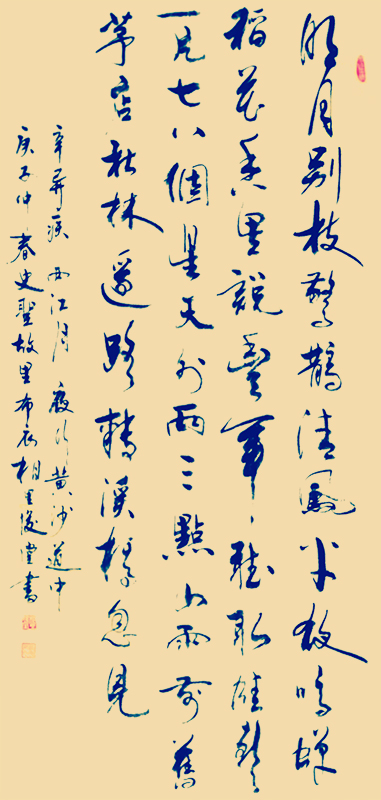 明月別枝驚鵲清風半夜鳴蟬
稻花香里說豐年聽取蛙聲
一片七八個星天外兩三點山雨前舊
茅店社林邊路轉溪橋忽見
辛弃疾西江月夜行黄沙道中
庚子仲春史聖故里布衣相里俊堂書